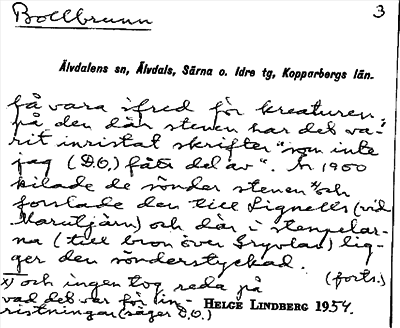 Bollbrunn
3
Älvdalens sn, Älvdals, Särna o. Idre tg, Kopparbergs län.
få vara ifred för kreaturen,
på den där stenen har det va-
rit inristat skrifter "som inte
jag (D.O.) fått del av". År 1900
kilade de sönder stenen x) och
forslade den till Lignells (vid
Marutjärn) och där i stenpelar-
na (till bron över Gryvlan) lig-
ger den sönderstyckad.
(forts.)
x) och ingen tog reda på
vad det var för in-
ristningar (säger D.O.)
HELGE LINDBERG 1954.